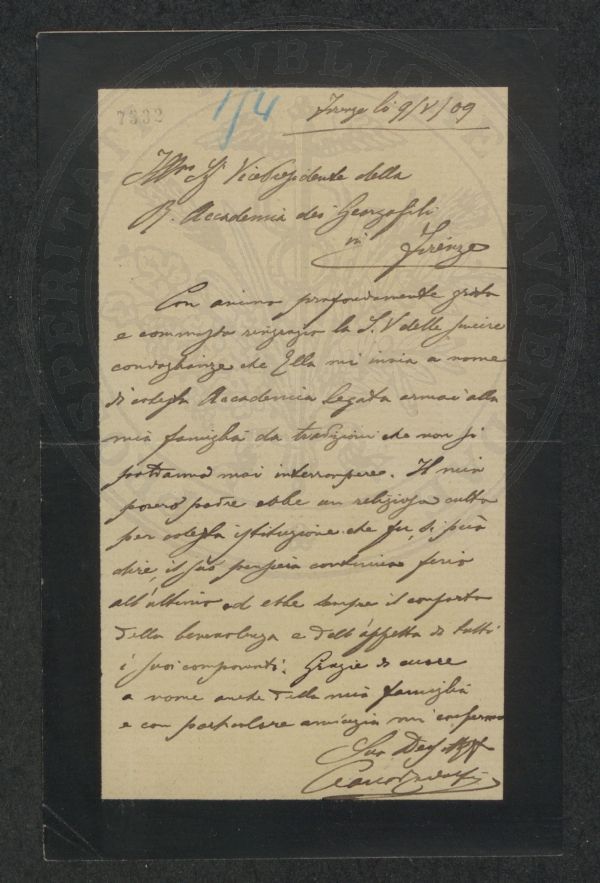 7532
1/4
Firenze li 9/V/09
Illmo Sr Vice Presidente della
R. Accademia dei Georgofili
in Firenze
Con animo profondamente grato
e commosso ringrazio la S.V delle sincere
condoglianze che Ella mi invia a nome
di codesta Accademia legata ormai alla
mia famiglia da tradizioni che non si
potranno mai interrompere. Il mio
povero padre ebbe un religioso culto
per codesta istituzione che fu, si può
dire, il suo pensiero continuo fino
all'ultimo ed ebbe sempre il conforto
della benevolenza e dell'affetto di tutti
i suoi componenti. Grazie di cuore
a nome anche della mia famiglia
e con particolare amicizia mi confermo
Suo